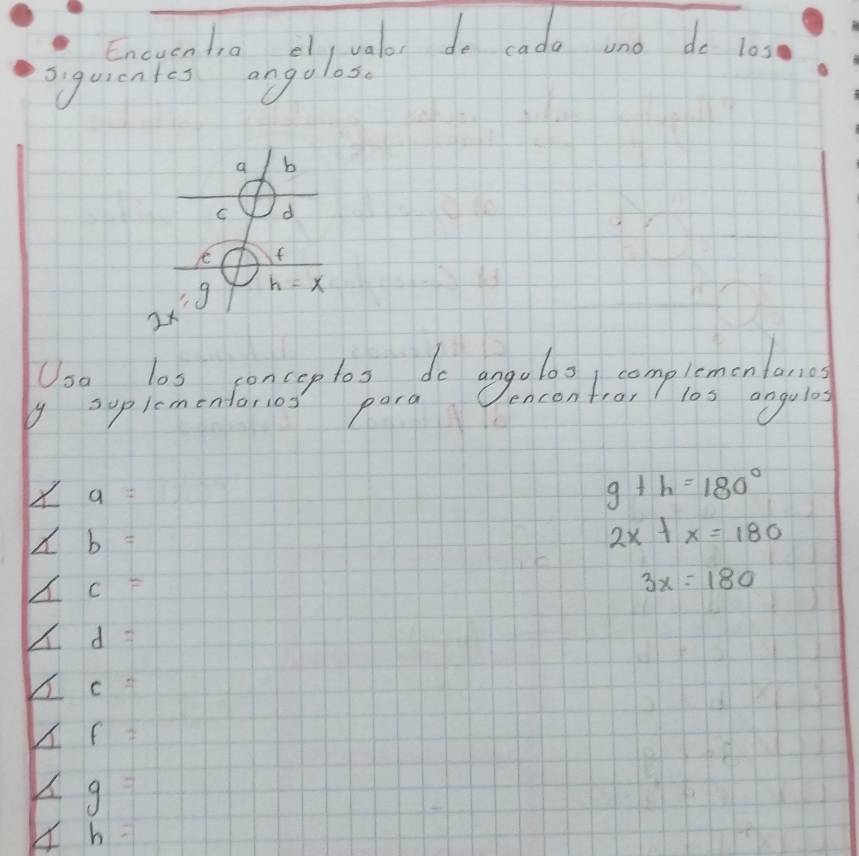 Encuentra el valor de cada uno de los
siguientes angulos.
a b
c d
e f
g h = x
2x =
Usa los conceptos de angulos complementarios
y suplementarios para encontrar los angulos
∡ a =
g + h = 180°
∡ b =
2x + x = 180
∡ c =
3x = 180
∡ d =
∡ e =
∡ f =
∡ g =
∡ h =